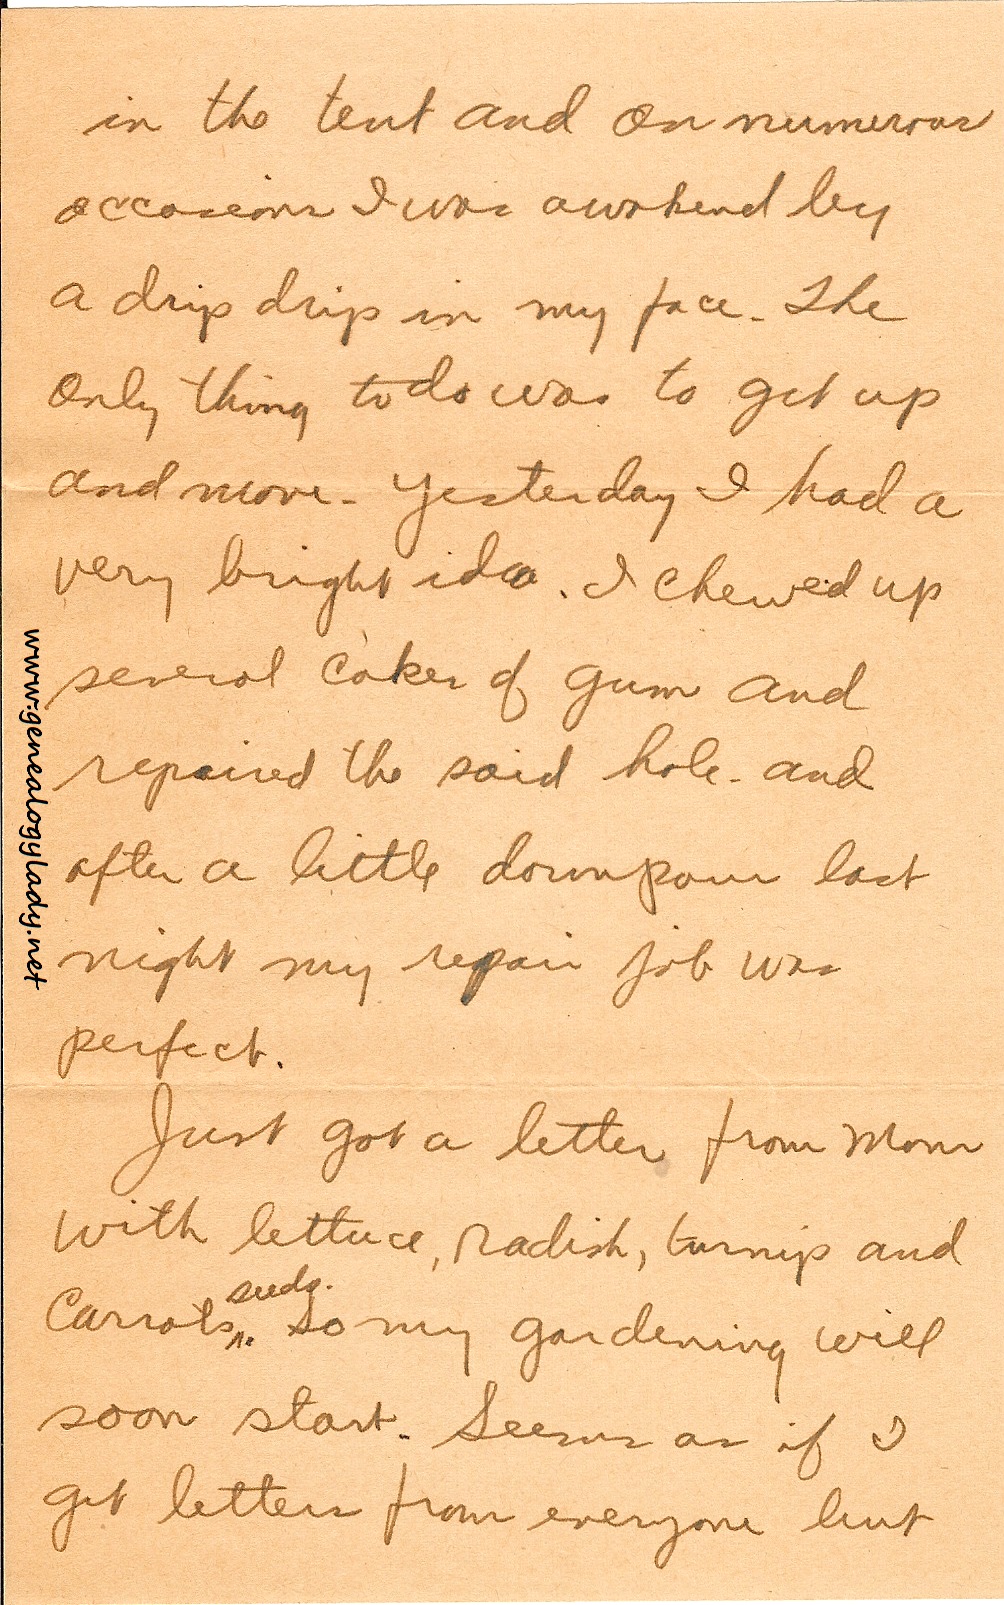 in the tent and on numerous
occasions I was awakend by
a drip drip in my face. The
only thing to do was to get up
and move. Yesterday I had a
very bright idea. I chewed up
several cakes of gum and
repaired the said hole. and
after a little downpour last
night my repair job was
perfect.
Just got a letter from Mom
with lettuce, radish, turnip and
seeds.
Carrots^. So my gardening will
soon start. Seems as if I
get letters from everyone but
www.genealogylady.net